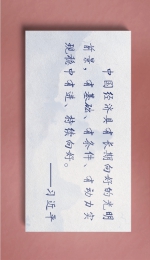 中国经济具有长期向好的光明
前景，有基础、有条件、有动力实
现稳中有进、持续向好。
——习近平